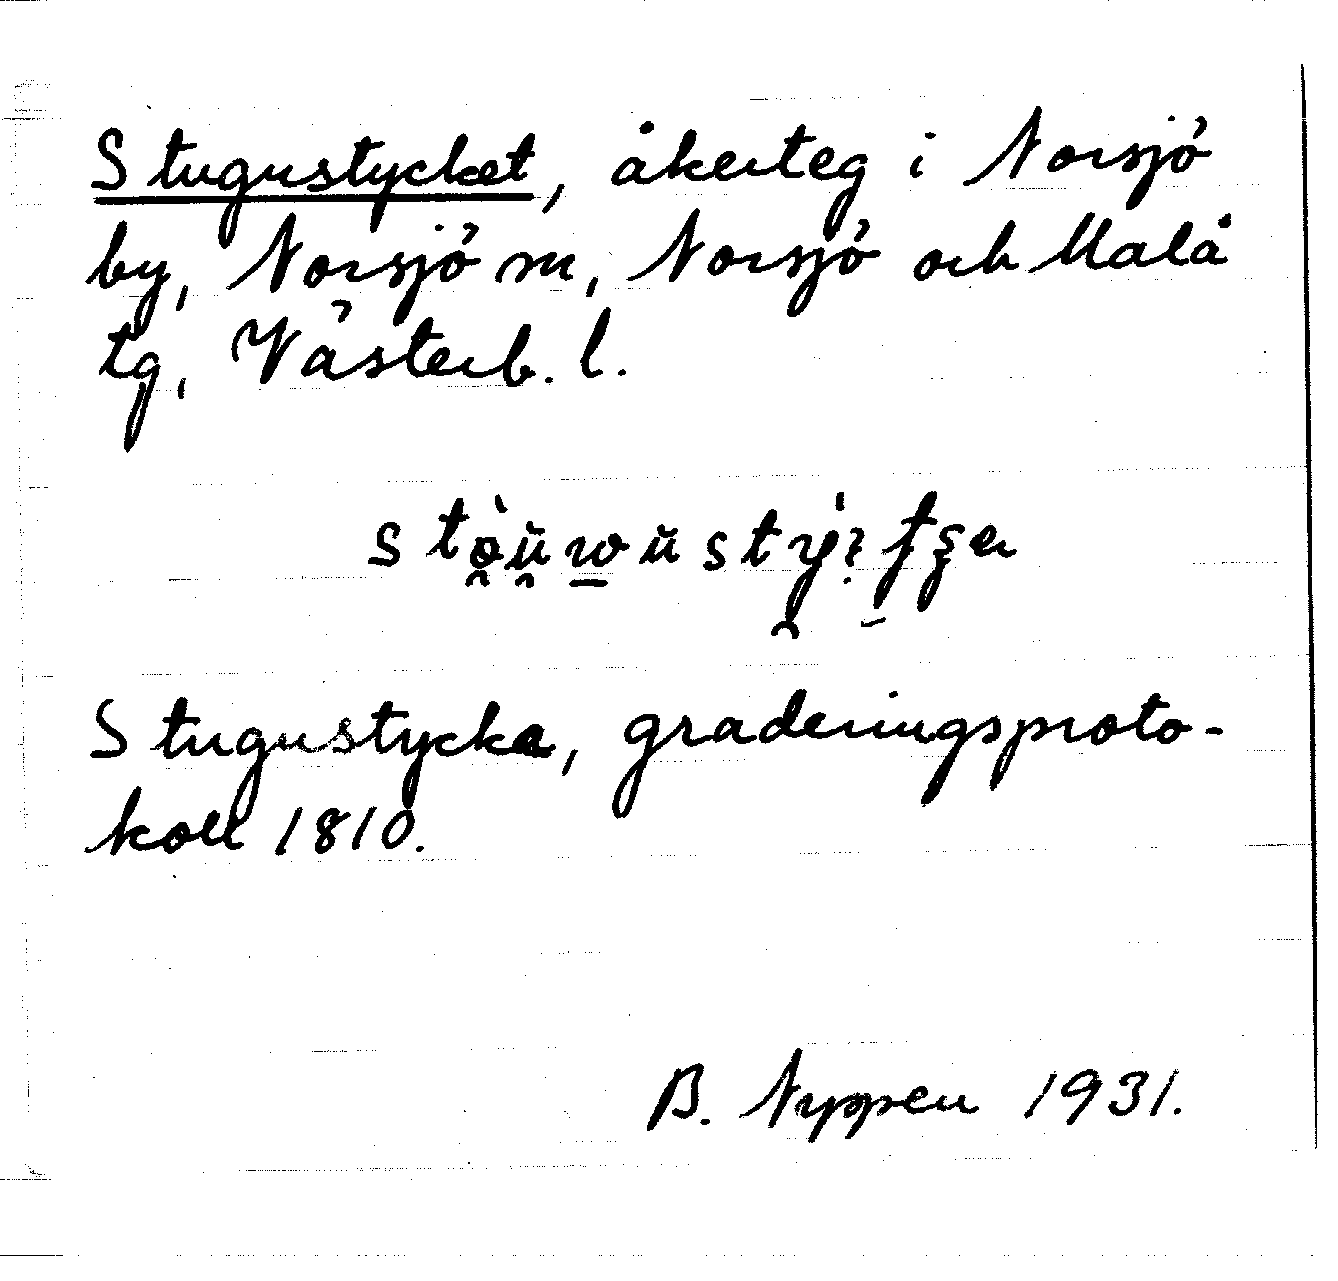 Stugustycket, åkerteg i Norsjö
by, Norsjö sn, Norsjö och Malå
tg, Västerb. l.
Stugustycke, graderingsproto-
koll 1810.
B. Nyppen 1931.